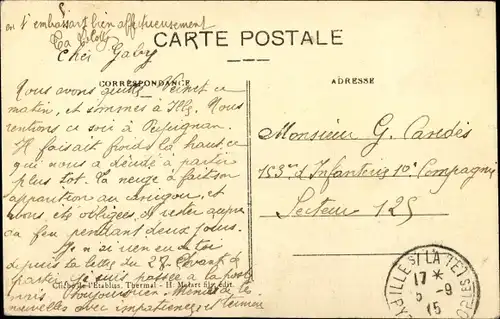 en t'embrassant bien affectueusement
Ta
CARTE POSTALE
Chei Gaby
CORRESPONDANCE
ADRESSE
Nous avons quitté Vernet ce
matin, et sommes à Ille. Nous
rentrons ce soir à Perpignan.
Il faisait froid là haut, ce
qui nous a décidé à partir
plus tot. La neige a fait son
apparition au Canigou, et
nous, obligées de rester auprès
du feu pendant deux jours.
Je n'ai rien eu de toi
depuis ta lettre du 27. Avant de
partir, je suis passée à la poste
mais toujours rien.
nouvelles avec impatience, et termine
Monsieur G. Candès
153e d'Infanterie 10e Compagnie
Secteur 125
Thermal - H. Mafart fils, édit.
ILLE S! LA TET
17 *
5 - 9
15